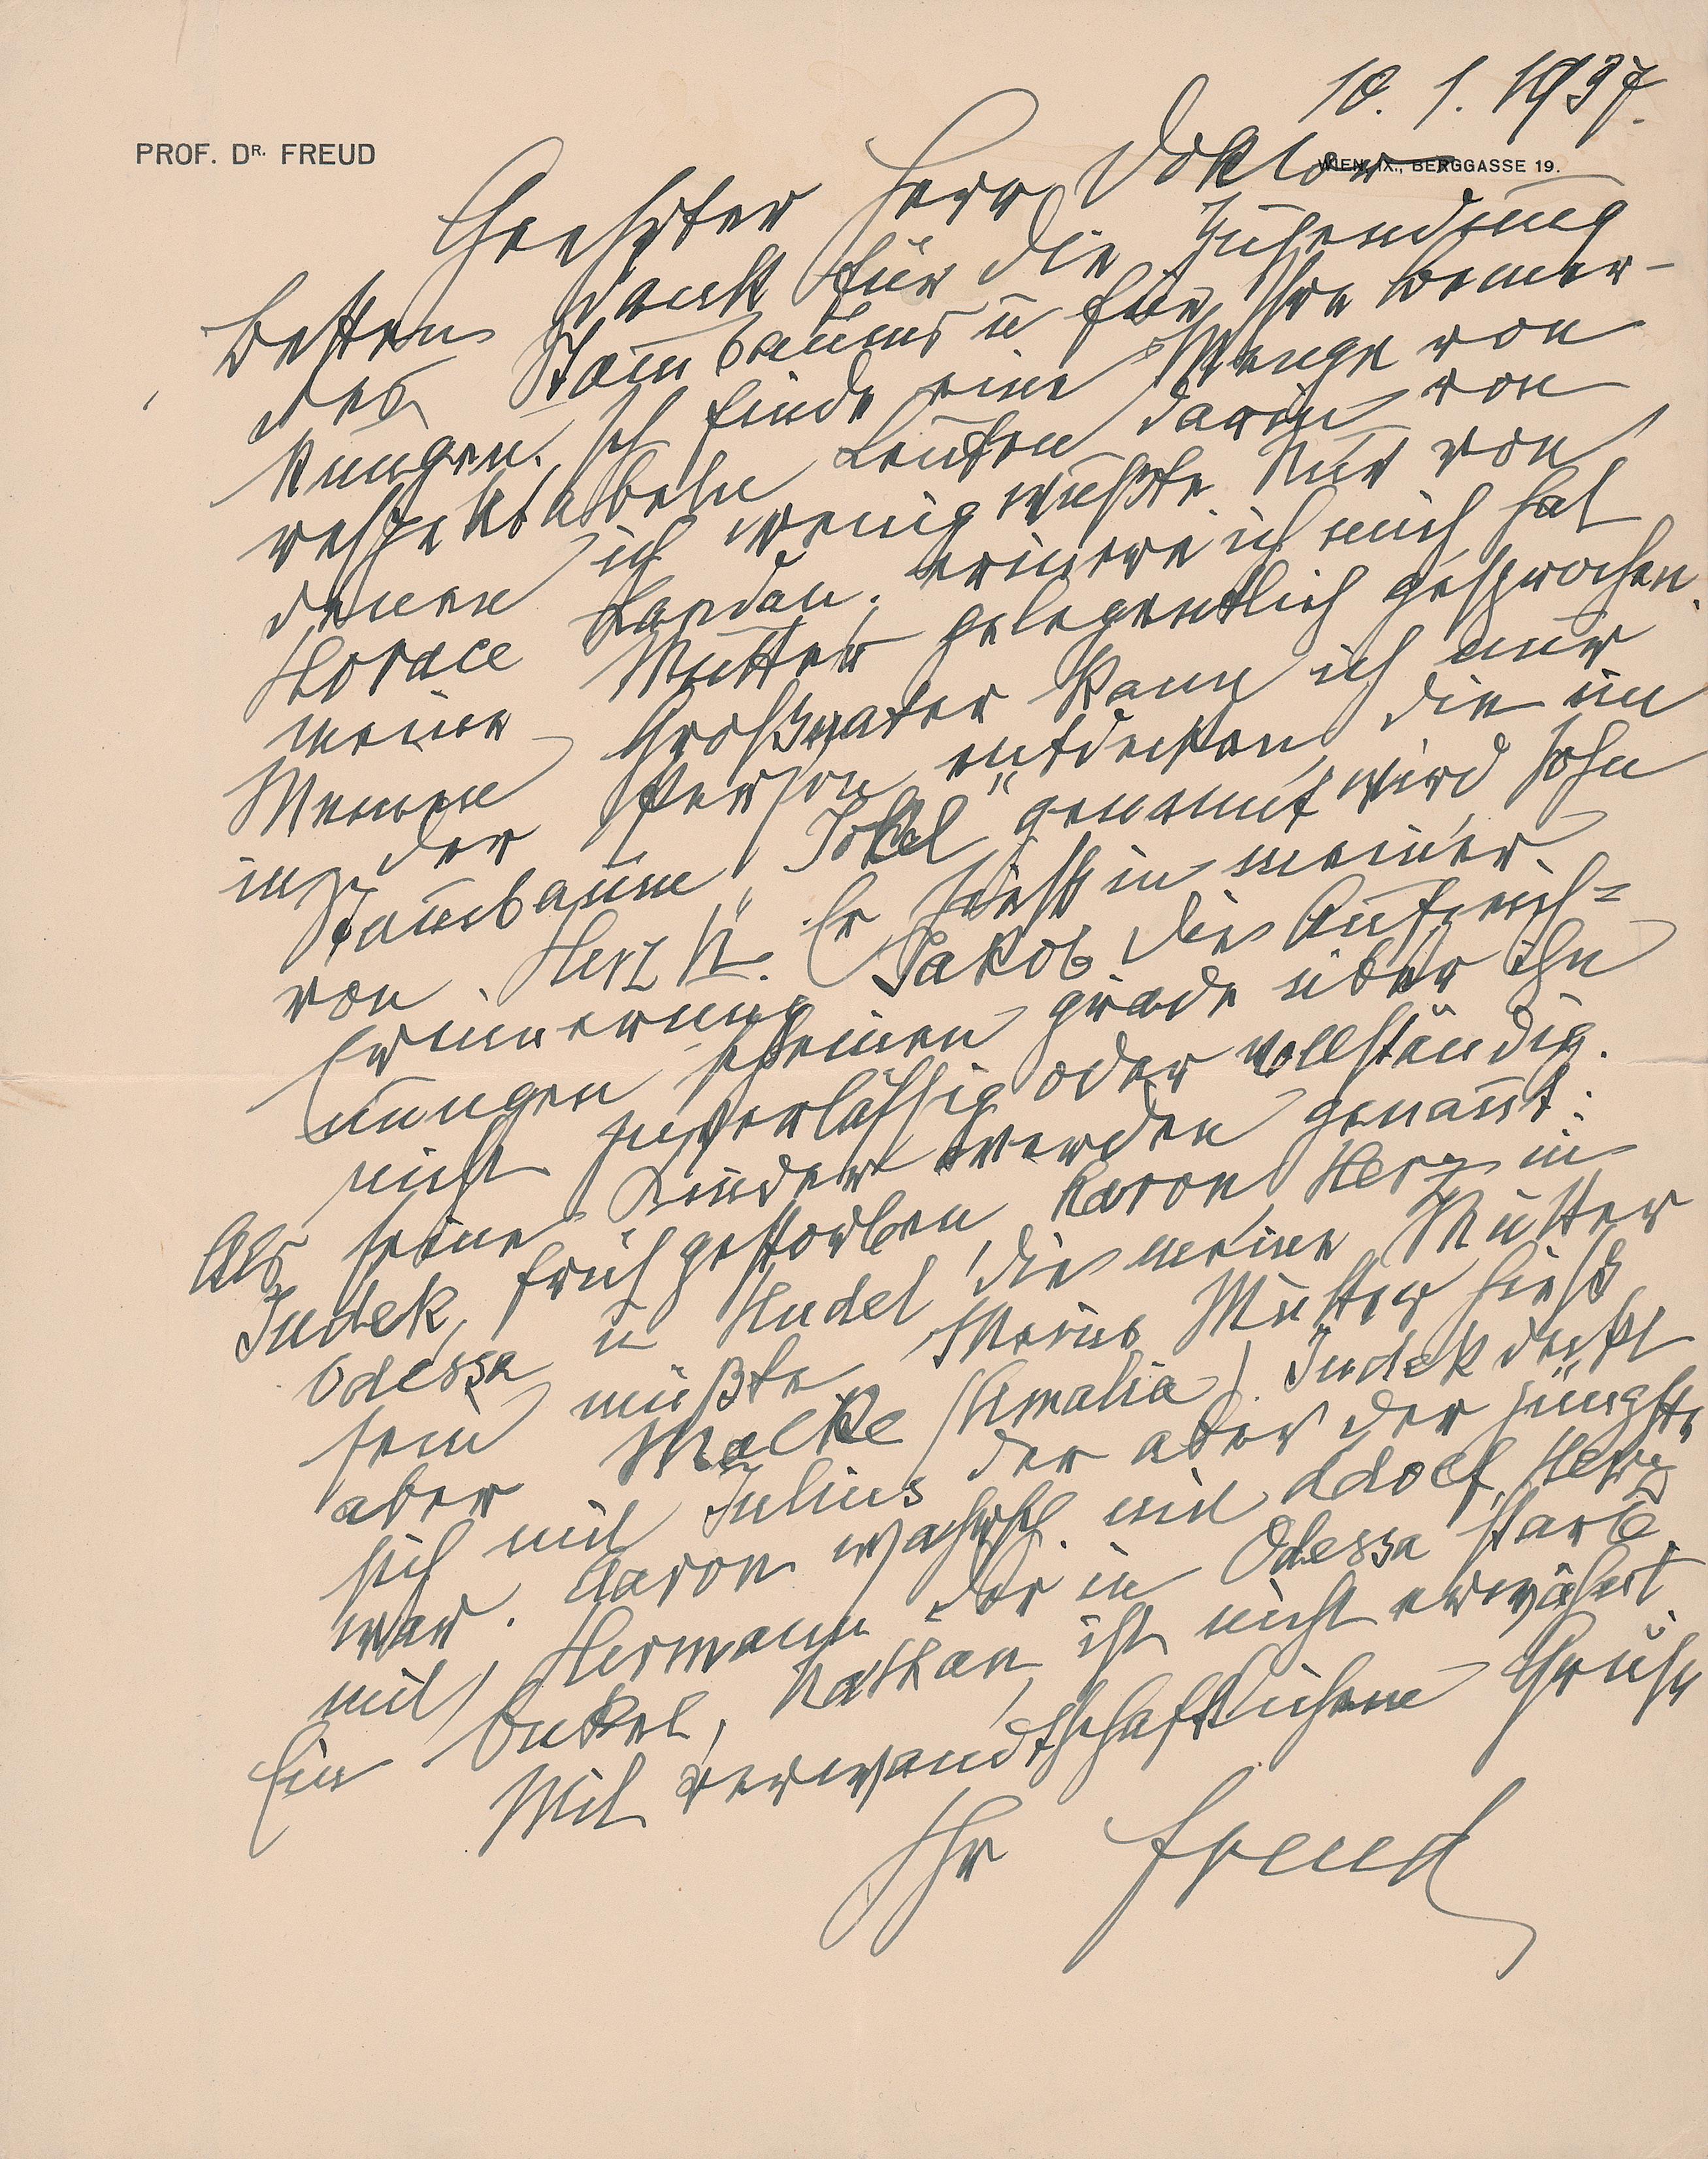 10. 1. 1937.
PROF. DR. FREUD
WIEN, IX., BERGGASSE 19.
Geehrter Herr Doktor
Besten Dank für die Zusendung
des Stammbaums u für Ihre Bemer-
kungen. Ich finde eine Menge von
respektabeln Leuten darin von
denen ich wenig wußte. Nur von
Horace Landau, erinnere ich mich hat
meine Mutter gelegentlich gesprochen.
Meinen Großvater kann ich nur
in der Person entdecken, die im
Stammbaum „Jokel" genannt wird Sohn
von Herz N. Er hieß in meiner
Erinnerung Jakob die Aufzeich-
nungen scheinen grade über ihn
nicht zuverlässig oder vollständig.
Als seine Kinder werden genannt:
Judek, früh gestorben, Aaron, Herz in
Odessa u Hudel, die meine Mutter
sein müßte. Meine Mutter hieß
aber Malke (Amalia). Judek deckt
sich mit Julius der aber der jüngste
war. Aaron wahrsch. mit Adolf, Herz
mit Hermann der in Odessa starb.
Ein Onkel, Nathan, ist nicht erwähnt.
Mit verwandtschaftlichem Gruß
Ihr Freud